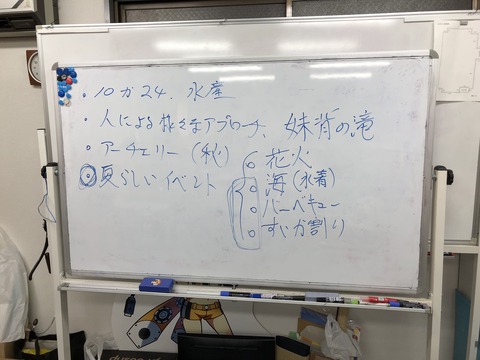 ・10か24. 水産
・人による様々なアプローチ、妹背の滝
・アーチェリー(秋)
・夏らしいイベント
○花火
○海(水着)
○バーベキュー
○すいか割り